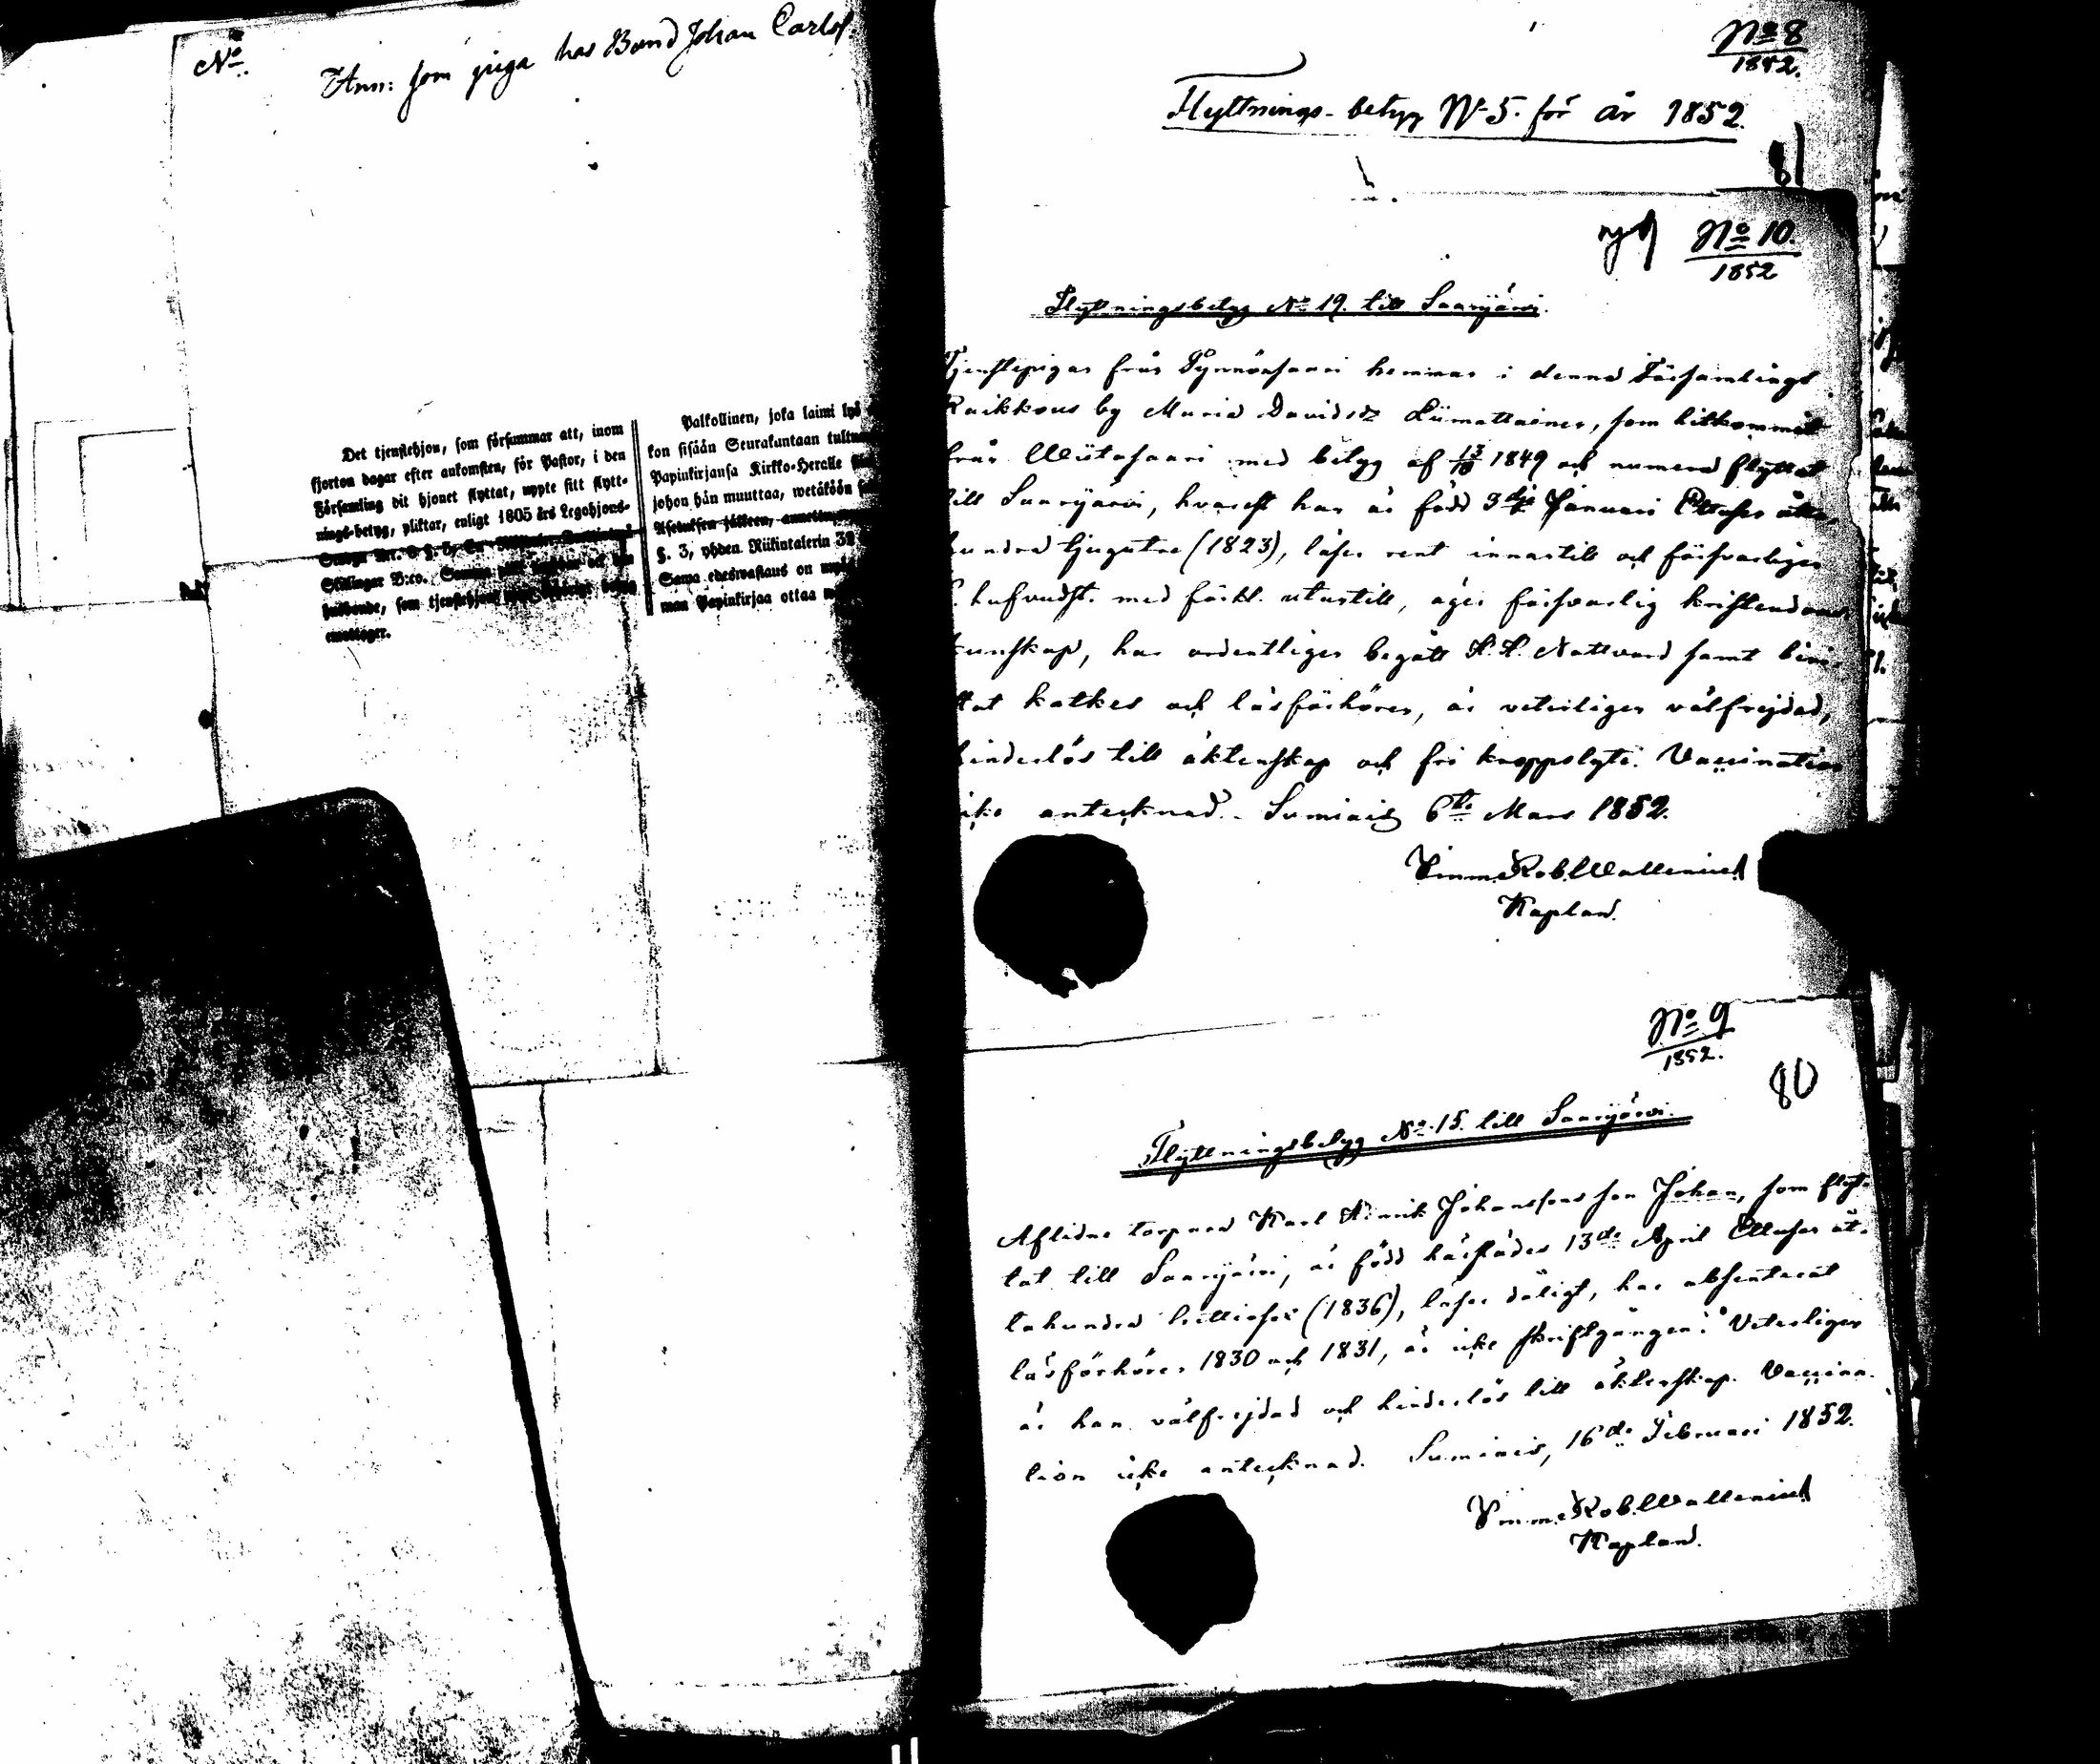 No.
Ann: som piga hos Bond Johan Carlss.
Det tjenstehjon, som försummar att, inom
fjorton dagar efter ankomsten, för Pastor, i den
Församling dit hjonet flyttat, uppte sitt flytt-
nings-betyg, pliktar, enligt 1805 års Legohjons-
Stadga Art.
Skillingar B:co. Samma
husbonde, som tjenstehjon
emottager.
Palkollinen, joka laimi lyö
kon sisään Seurakuntaan tultua
Papinkirjansa Kirkko-Heralle
johon hän muuttaa, wetäköön
Asetuksen jälkeen,
§. 3, yhden Riikintalerin 32
Sama edeswastaus on
man Papinkirjaa ottaa
No 8
1852.
Flyttnings-betyg No 5. för år 1852.
81
No 10.
1852
Flyttningsbetyg No 19. till Saarijärvi.
Tjenstepigan från hemman i denna Församlings
Raikkous by Maria Davidsdr Liimattainen, som hitkommit
från Wiitasaari med betyg af 13/10 1849 och numera flyttat
till Saarijärvi, hvarest hon är född 3dje Januari Ettusen åtta
hundra tjugutre (1823), läser rent innantill och försvarligen
hufvudst. med förkl. utantill, äger försvarlig kristendoms
kunskap, har ordentligen begått H. H. Nattvard samt bevi-
stat katkes och läsförhören, är veterligen välfrejdad,
hinderlös till äktenskap och fri kroppslyte. Vaccination
icke antecknad. Sumiais 6te Mars 1852.
Rob. Wallenius
Kaplan.
No 9
1852.
80
Flyttningsbetyg No 15. till Saarijärvi.
Aflidne torparen Karl Henrik Johanssons son Johan, som flyt-
tat till Saarijärvi, är född härstädes 13de April Ettusen åt-
tahundra trettiosex (1836), läser dåligt, har absenterat
läsförhören 1830 och 1831, är icke skriftgången. Veterligen
är han välfrejdad och hinderlös till äktenskap. Vaccina-
tion icke antecknad. Sumiais, 16de Februari 1852.
Rob. Wallenius
Kaplan.